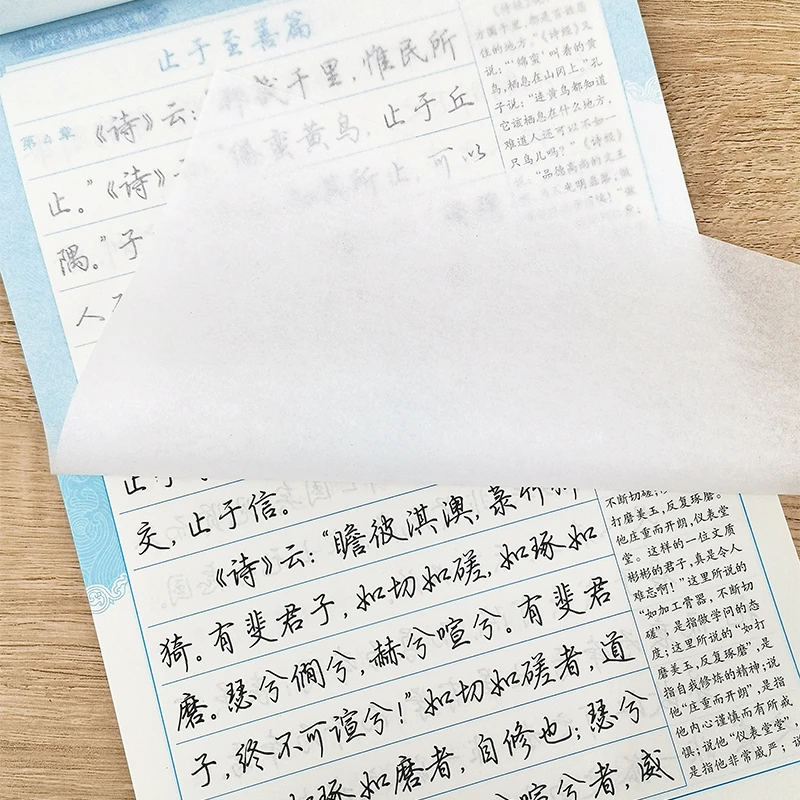 止于至善篇
第4章
《诗》云：“邦畿千里，惟民所
止。”《诗》 “缗蛮黄鸟，止于丘
隅。”子 知其所止，可以
人
止于
交，止于信。
《诗》云：“瞻彼淇澳，菉竹
猗。有斐君子，如切如磋，如琢如
磨。瑟兮僩兮，赫兮喧兮。有斐君
子，终不可諠兮！”如切如磋者，道
琢如磨者，自修也；瑟兮
喧兮者，威
方圆千里，都是百姓居
住的地方。”《诗经》又
说：“‘绵蛮’叫着的黄
鸟，栖息在山冈上。”孔
子说：“连黄鸟都知道
它该栖息在什么地方，
难道人还可以不如一
只鸟儿吗？”《诗经》
说：“品德高尚的文王
不断切磋；
打磨美玉，反复琢磨。
他庄重而开朗，仪表堂
堂。这样的一位文质
彬彬的君子，真是令人
难忘啊！”这里所说的
“如加工骨器，不断切
磋”，是指做学问的态
度；这里所说的“如打
磨美玉，反复琢磨”，是
指自我修炼的精神；说
他“庄重而开朗”，是指
他内心谨慎而有所戒
惧；说他“仪表堂堂”，
是指他非常威严；说